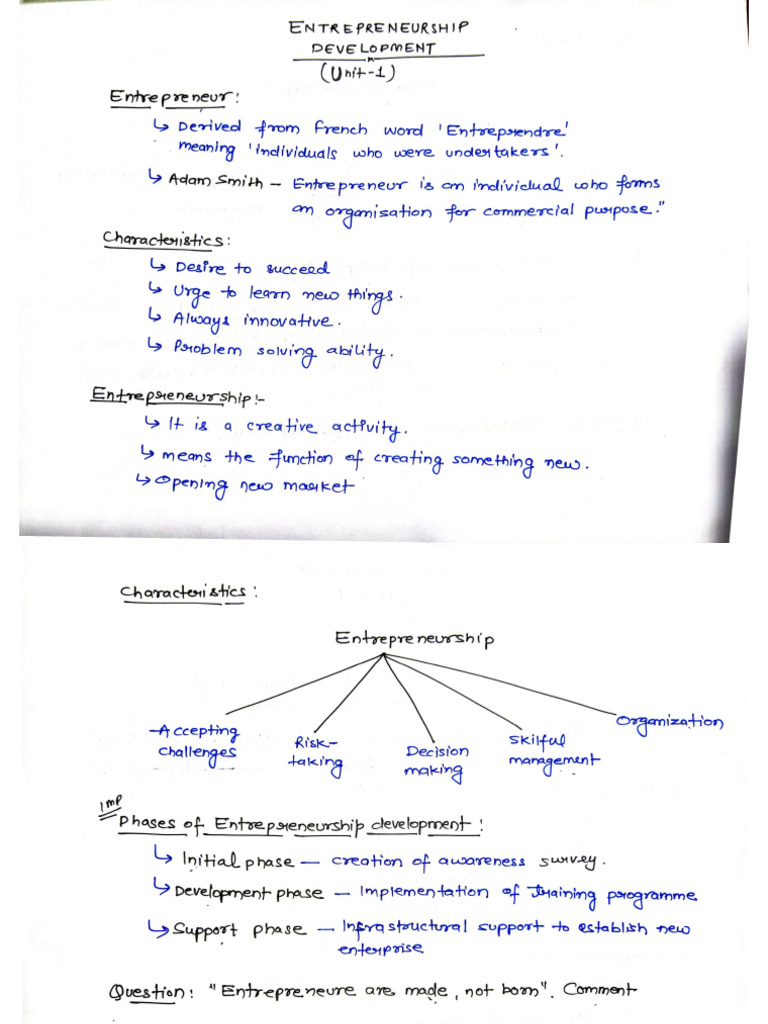 ENTREPRENEURSHIP
DEVELOPMENT
(Unit-1)
Entrepreneur:
↳ Derived from French word 'Entreprendre'
meaning 'individuals who were undertakers'.
↳ Adam Smith – Entrepreneur is an individual who forms
an organisation for commercial purpose."
Characteristics:
↳ Desire to succeed
↳ Urge to learn new things.
↳ Always innovative.
↳ Problem solving ability.
Entrepreneurship:-
↳ It is a creative activity.
↳ means the function of creating something new.
↳ Opening new market
Characteristics:
Entrepreneurship
-Accepting
challenges
Risk-
taking
Decision
making
Skilful
management
Organization
Imp
Phases of Entrepreneurship development:
↳ Initial phase – creation of awareness survey.
↳ Development phase – Implementation of training programme
↳ Support phase – Infrastructural support to establish new
enterprise
Question: "Entrepreneure are made, not born". Comment